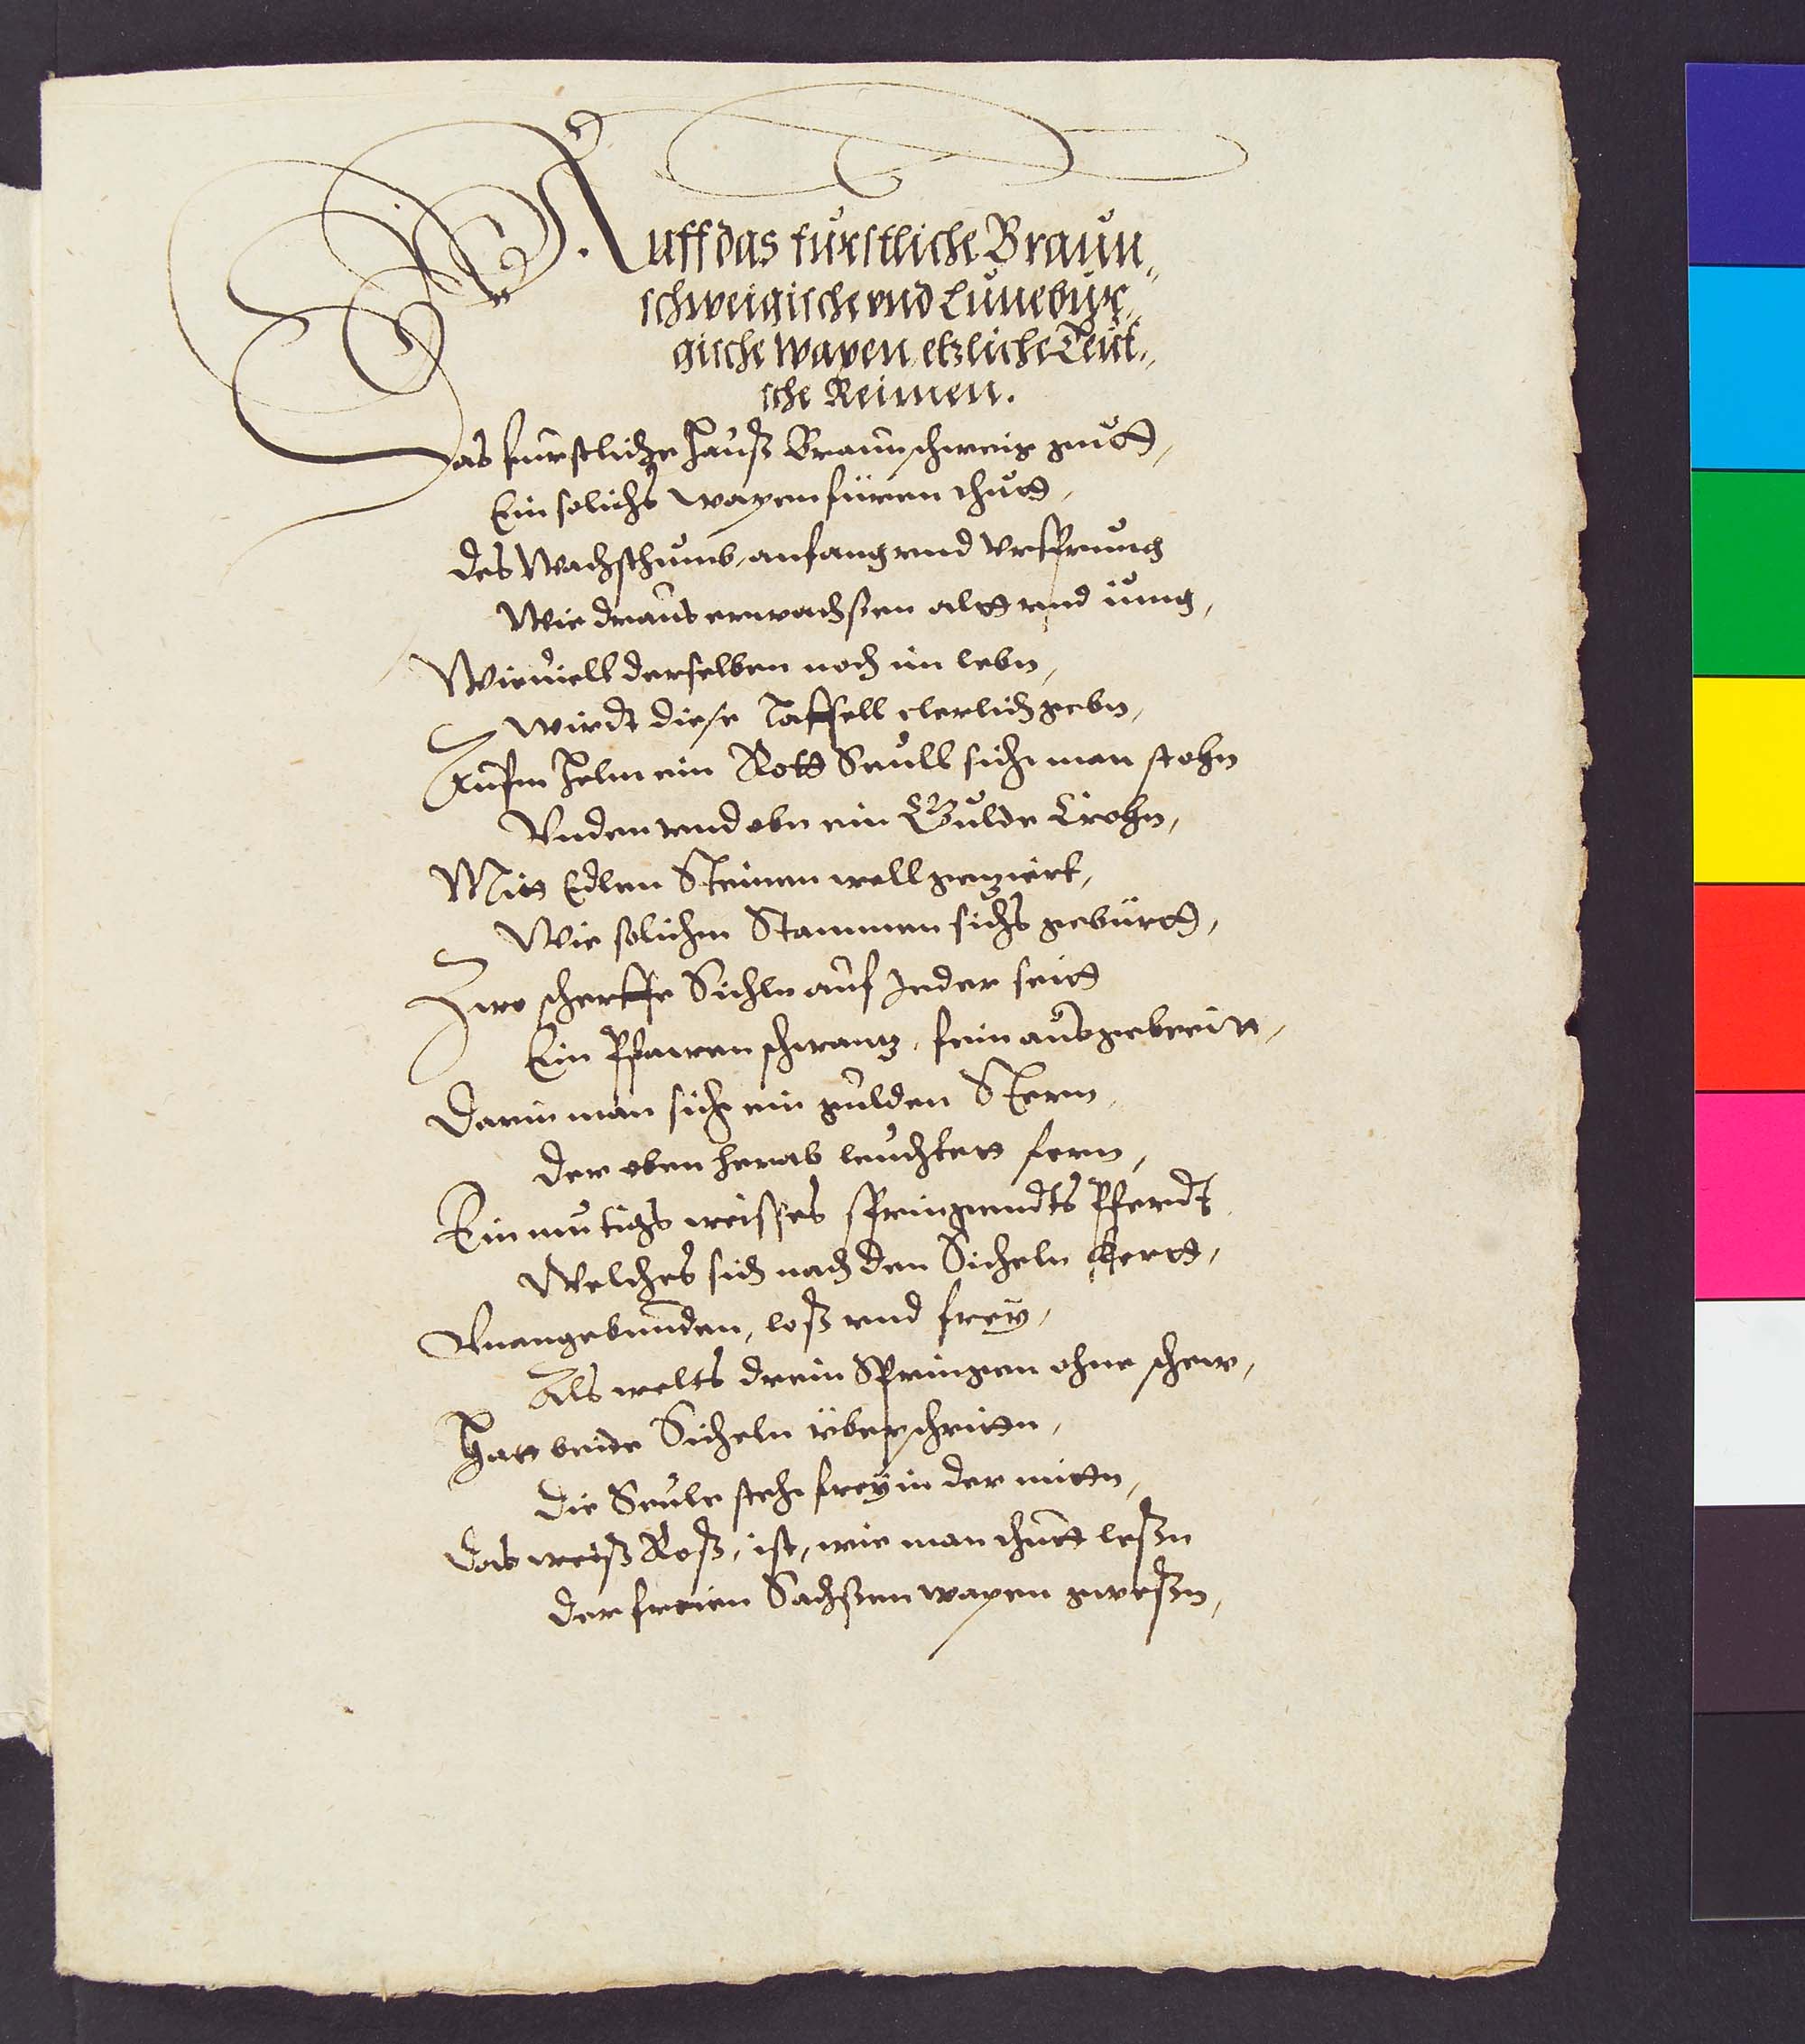 Auff das furstliche Braun„
schweigische vnd Lunebur„
gische wapen, etzliche Teut„
sche Reimen.
Das furstliche Hauß Braunschweig gutt,
Ein solichs wapen füren thutt,
des Wachsthumb, anfang vnd Vrsprung
Wie draus erwachssen altt vnd iung,
Wieviell derselben noch im lebn,
Wirdt diese Taffell clerlich gebn,
Aufm Helm ein Rott Seull sicht man stohn
Vnden vnd obn ein Gulde Crohn,
Mitt Edlen Steinen woll geziert,
Wie solichm Stammen sichs gebürtt,
Zwo scherffe Sichln auf Jeder seitt
Ein Pfawenschwantz, fein ausgebreitt,
Darin man sicht ein gulden Stern,
der oben herab leuchtett fern,
Ein mutigs weisses springendts Pferdt
Welches sich nach den Sicheln kertt,
Vnangebunden, loß vnd frey,
Als wolts drein Springen ohne schew,
Hatt beide Sicheln überschrittn,
die Seule steht frey in der mittn,
Das weiß Roß, ist, wie man thutt leßn
der freien Sachssen wapen gweßn,